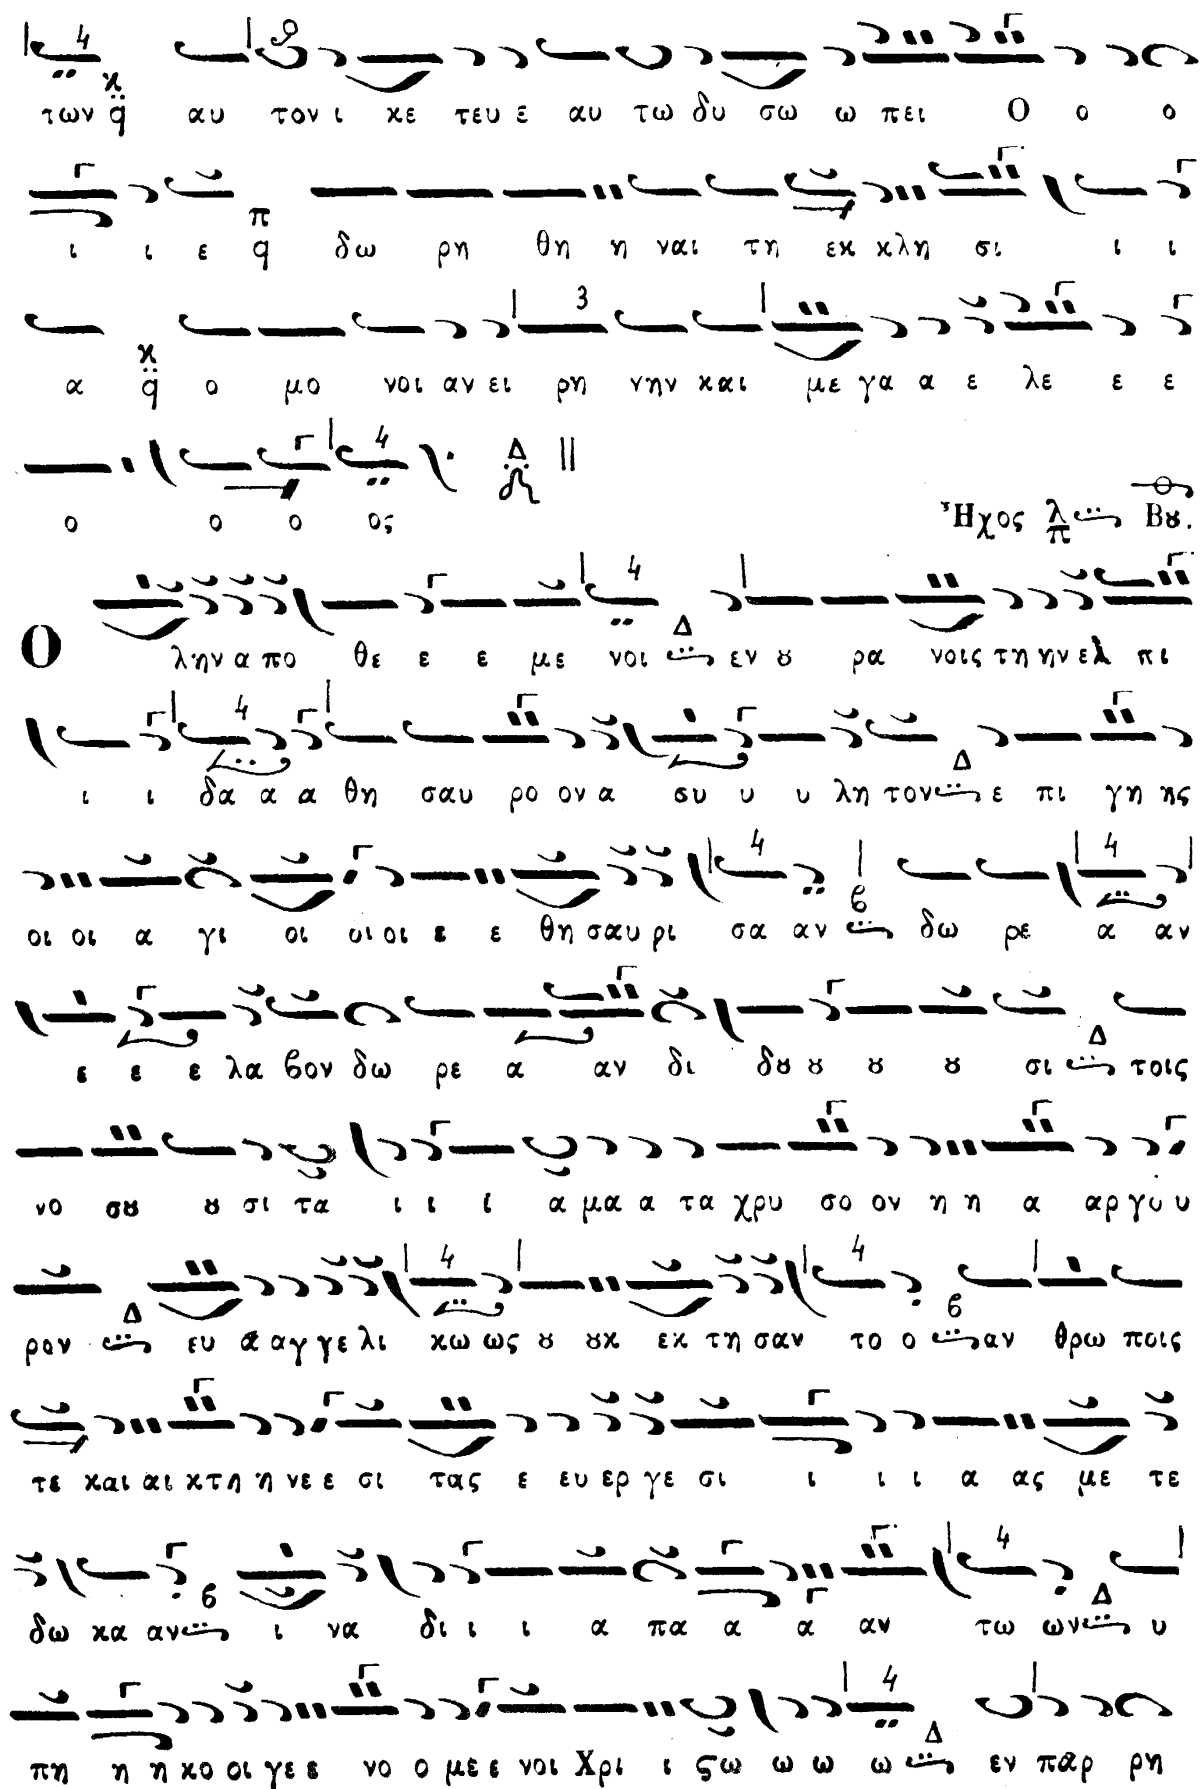 των αυ τον ι κε τευ ε αυ τω δυ σω ω πει Ο ο ο
ι ι ε δω ρη θη η ναι τη εκ κλη σι ι ι
α ο μο νοι αν ει ρη νην και με γα α ε λε ε ε
ο ο ο ος
Ἦχος λ π Βȣ.
Ο λην α πο θε ε ε με νοι εν ȣ ρα νοις τη ην ελ πι
ι ι δα α α θη σαυ ρο ον α συ υ υ λη τον ε πι γη ης
οι οι α γι οι οι οι ε ε θη σαυ ρι σα αν δω ρε α αν
ε ε ε λα βον δω ρε α αν δι δȣ ȣ ȣ ȣ σι τοις
νο σȣ ȣ σι τα ι ι ι α μα α τα χρυ σο ον η η α αρ γυ υ
ρον ευ α αγ γε λι κω ως ȣ ȣκ εκ τη σαν το ο αν θρω ποις
τε και αι κτη η νε ε σι τας ε ευ ερ γε σι ι ι ι α ας με τε
δω κα αν ι να δι ι ι α πα α α αν τω ων υ
πη η η κο οι γε ε νο ο με ε νοι Χρι ι ςω ω ω ω εν παρ ρη